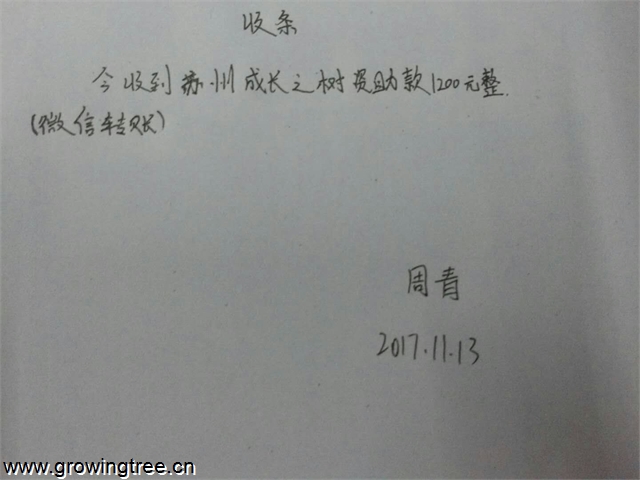 收条
今收到苏州成长之树资助款1200元整.
(微信转账)
周青
2017.11.13
www.growingtree.cn